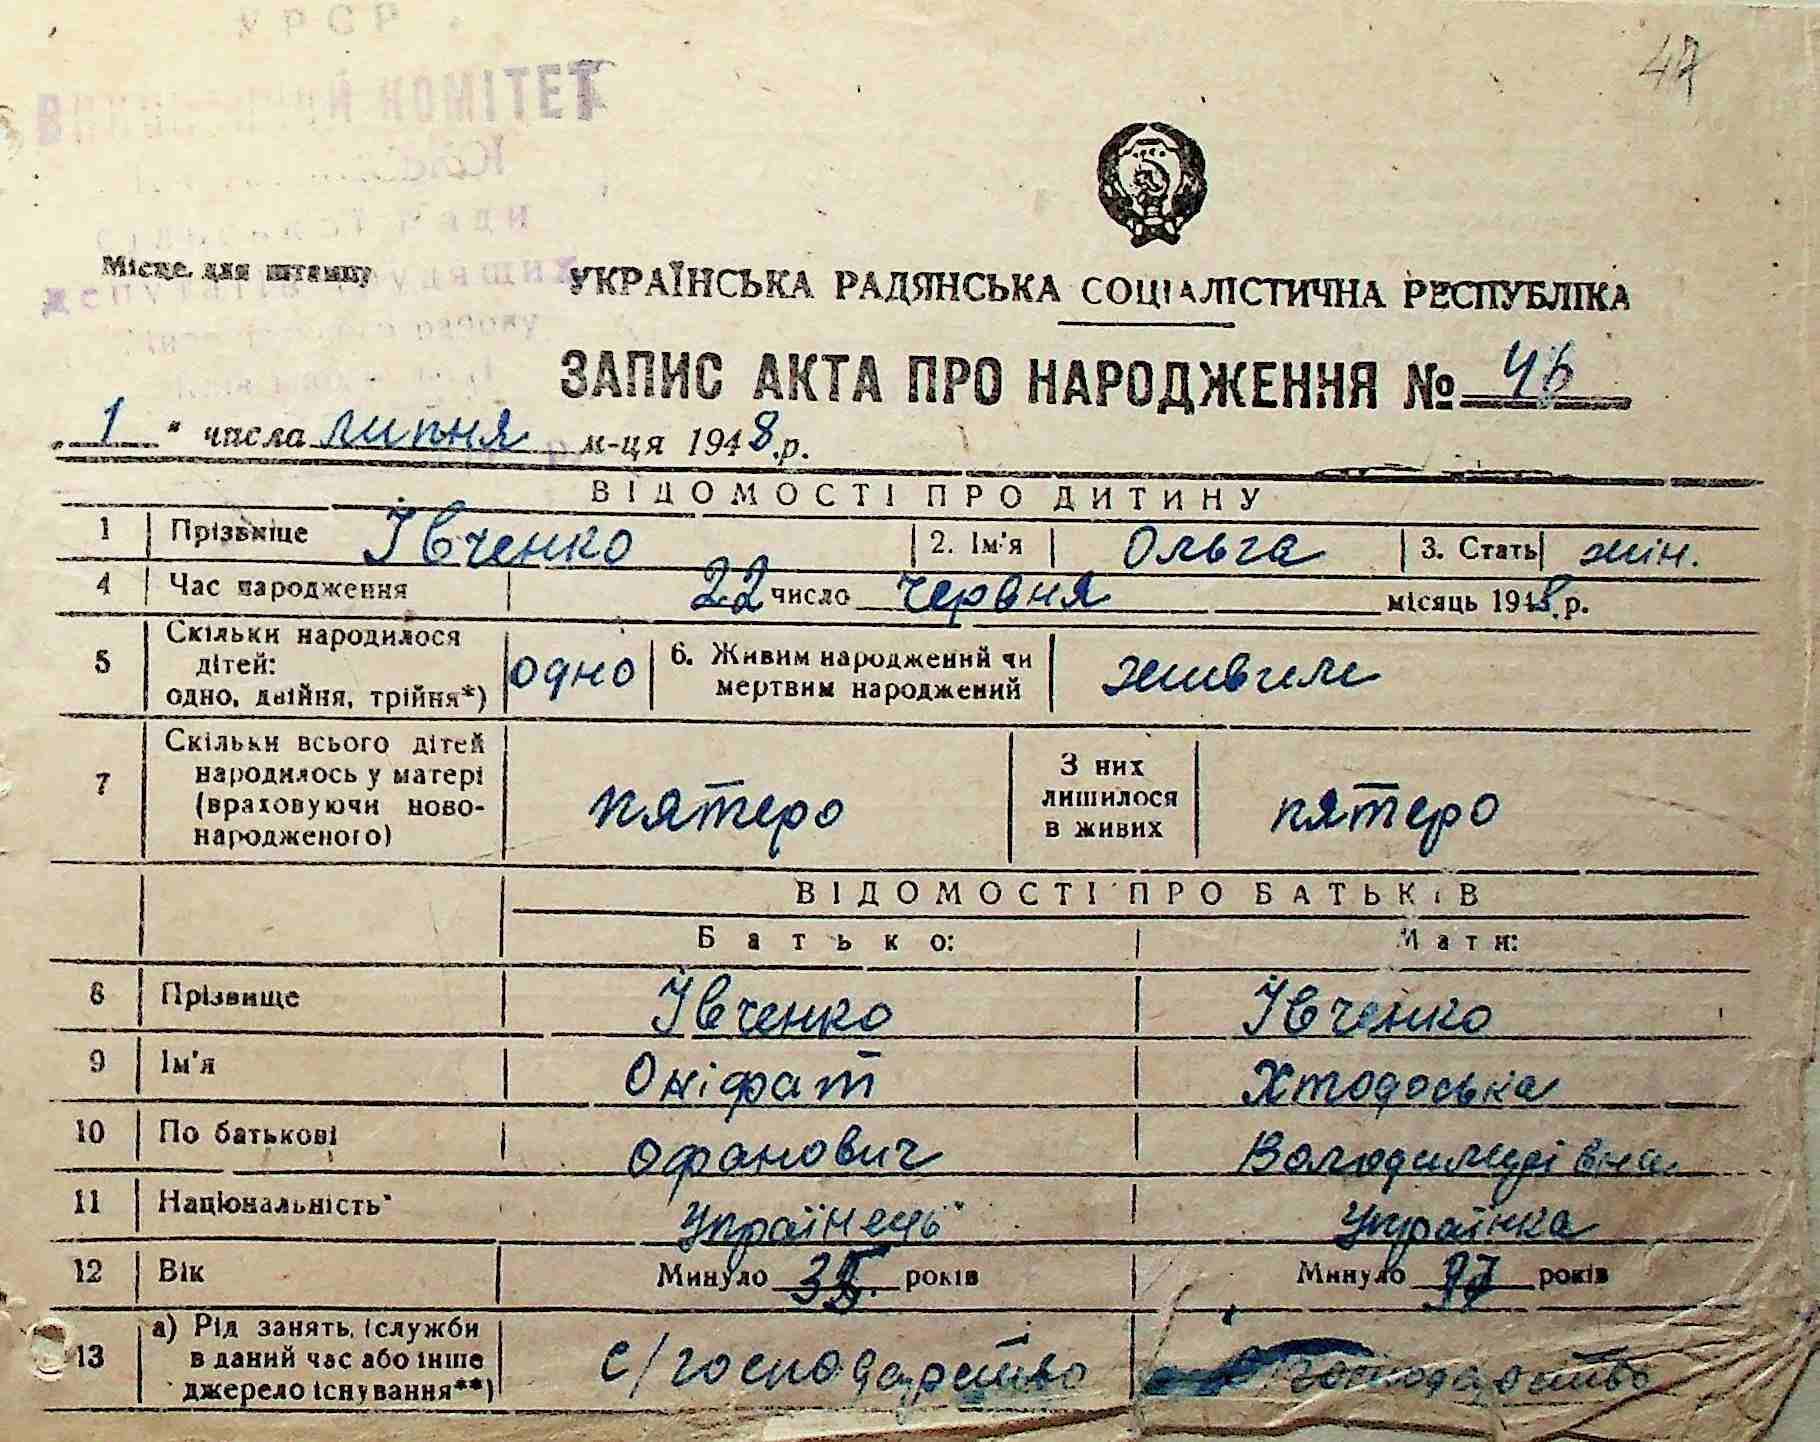 УРСР
ВИКОНАВЧИЙ КОМІТЕТ
47
Місце для штампу
депутатів трудящих
району
УКРАЇНСЬКА РАДЯНСЬКА СОЦІАЛІСТИЧНА РЕСПУБЛІКА
ЗАПИС АКТА ПРО НАРОДЖЕННЯ № 46
„1“ числа липня м-ця 1948 р.
ВІДОМОСТІ ПРО ДИТИНУ
1 Прізвище Івченко 2. Ім'я Ольга 3. Стать жін.
4 Час народження 22 число червня місяць 1948 р.
5 Скільки народилося
дітей:
одно, двійня, трійня*) одно 6. Живим народжений чи
мертвим народжений живим
7 Скільки всього дітей
народилось у матері
(враховуючи ново-
народженого) пятеро З них
лишилося
в живих пятеро
ВІДОМОСТІ ПРО БАТЬКІВ
Батько: Мати:
8 Прізвище Івченко Івченко
9 Ім'я Оніфат Хтодоська
10 По батькові Офанович Володимирівна
11 Національність Українець Українка
12 Вік Минуло років Минуло 37 років
13 а) Рід занять (служби
в даний час або інше
джерело існування**) с/господарство господарство